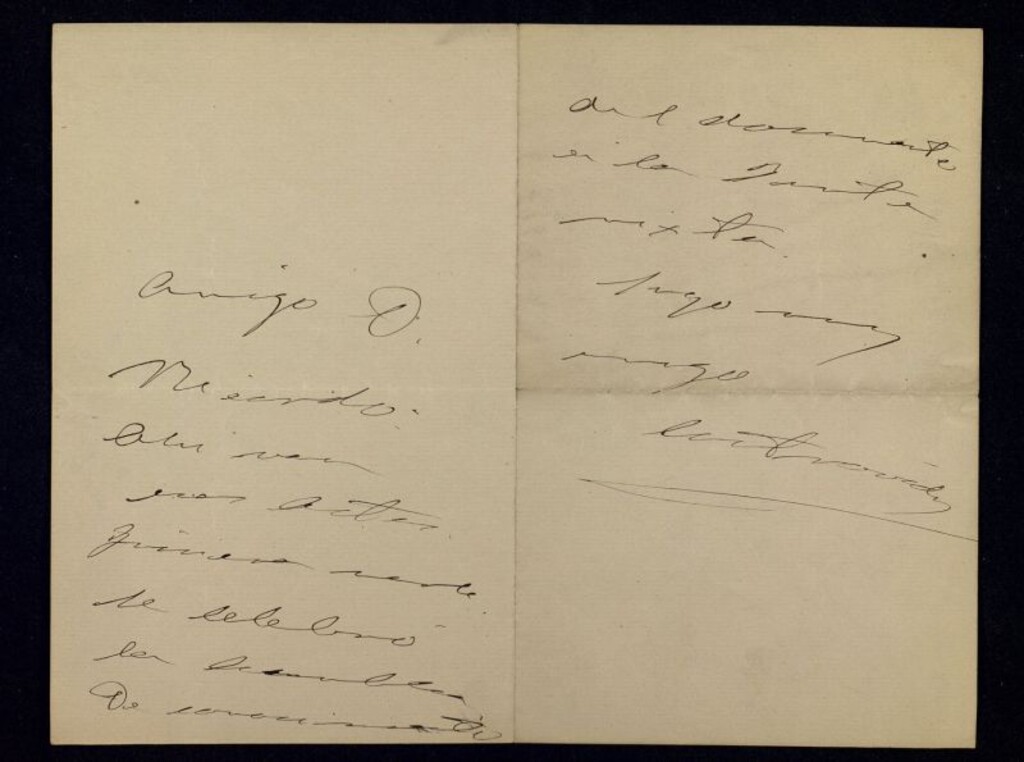 Amigo D.
Ricardo:
Ahi van
esas actas.
Primero
se celebró
la Asamblea
De conocimiento
del documento
en la Junta
mixta.
Suyo muy
amigo